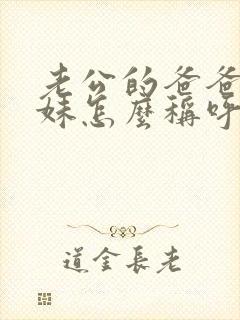 老公的爸爸
妹怎麼稱呼
道金長老